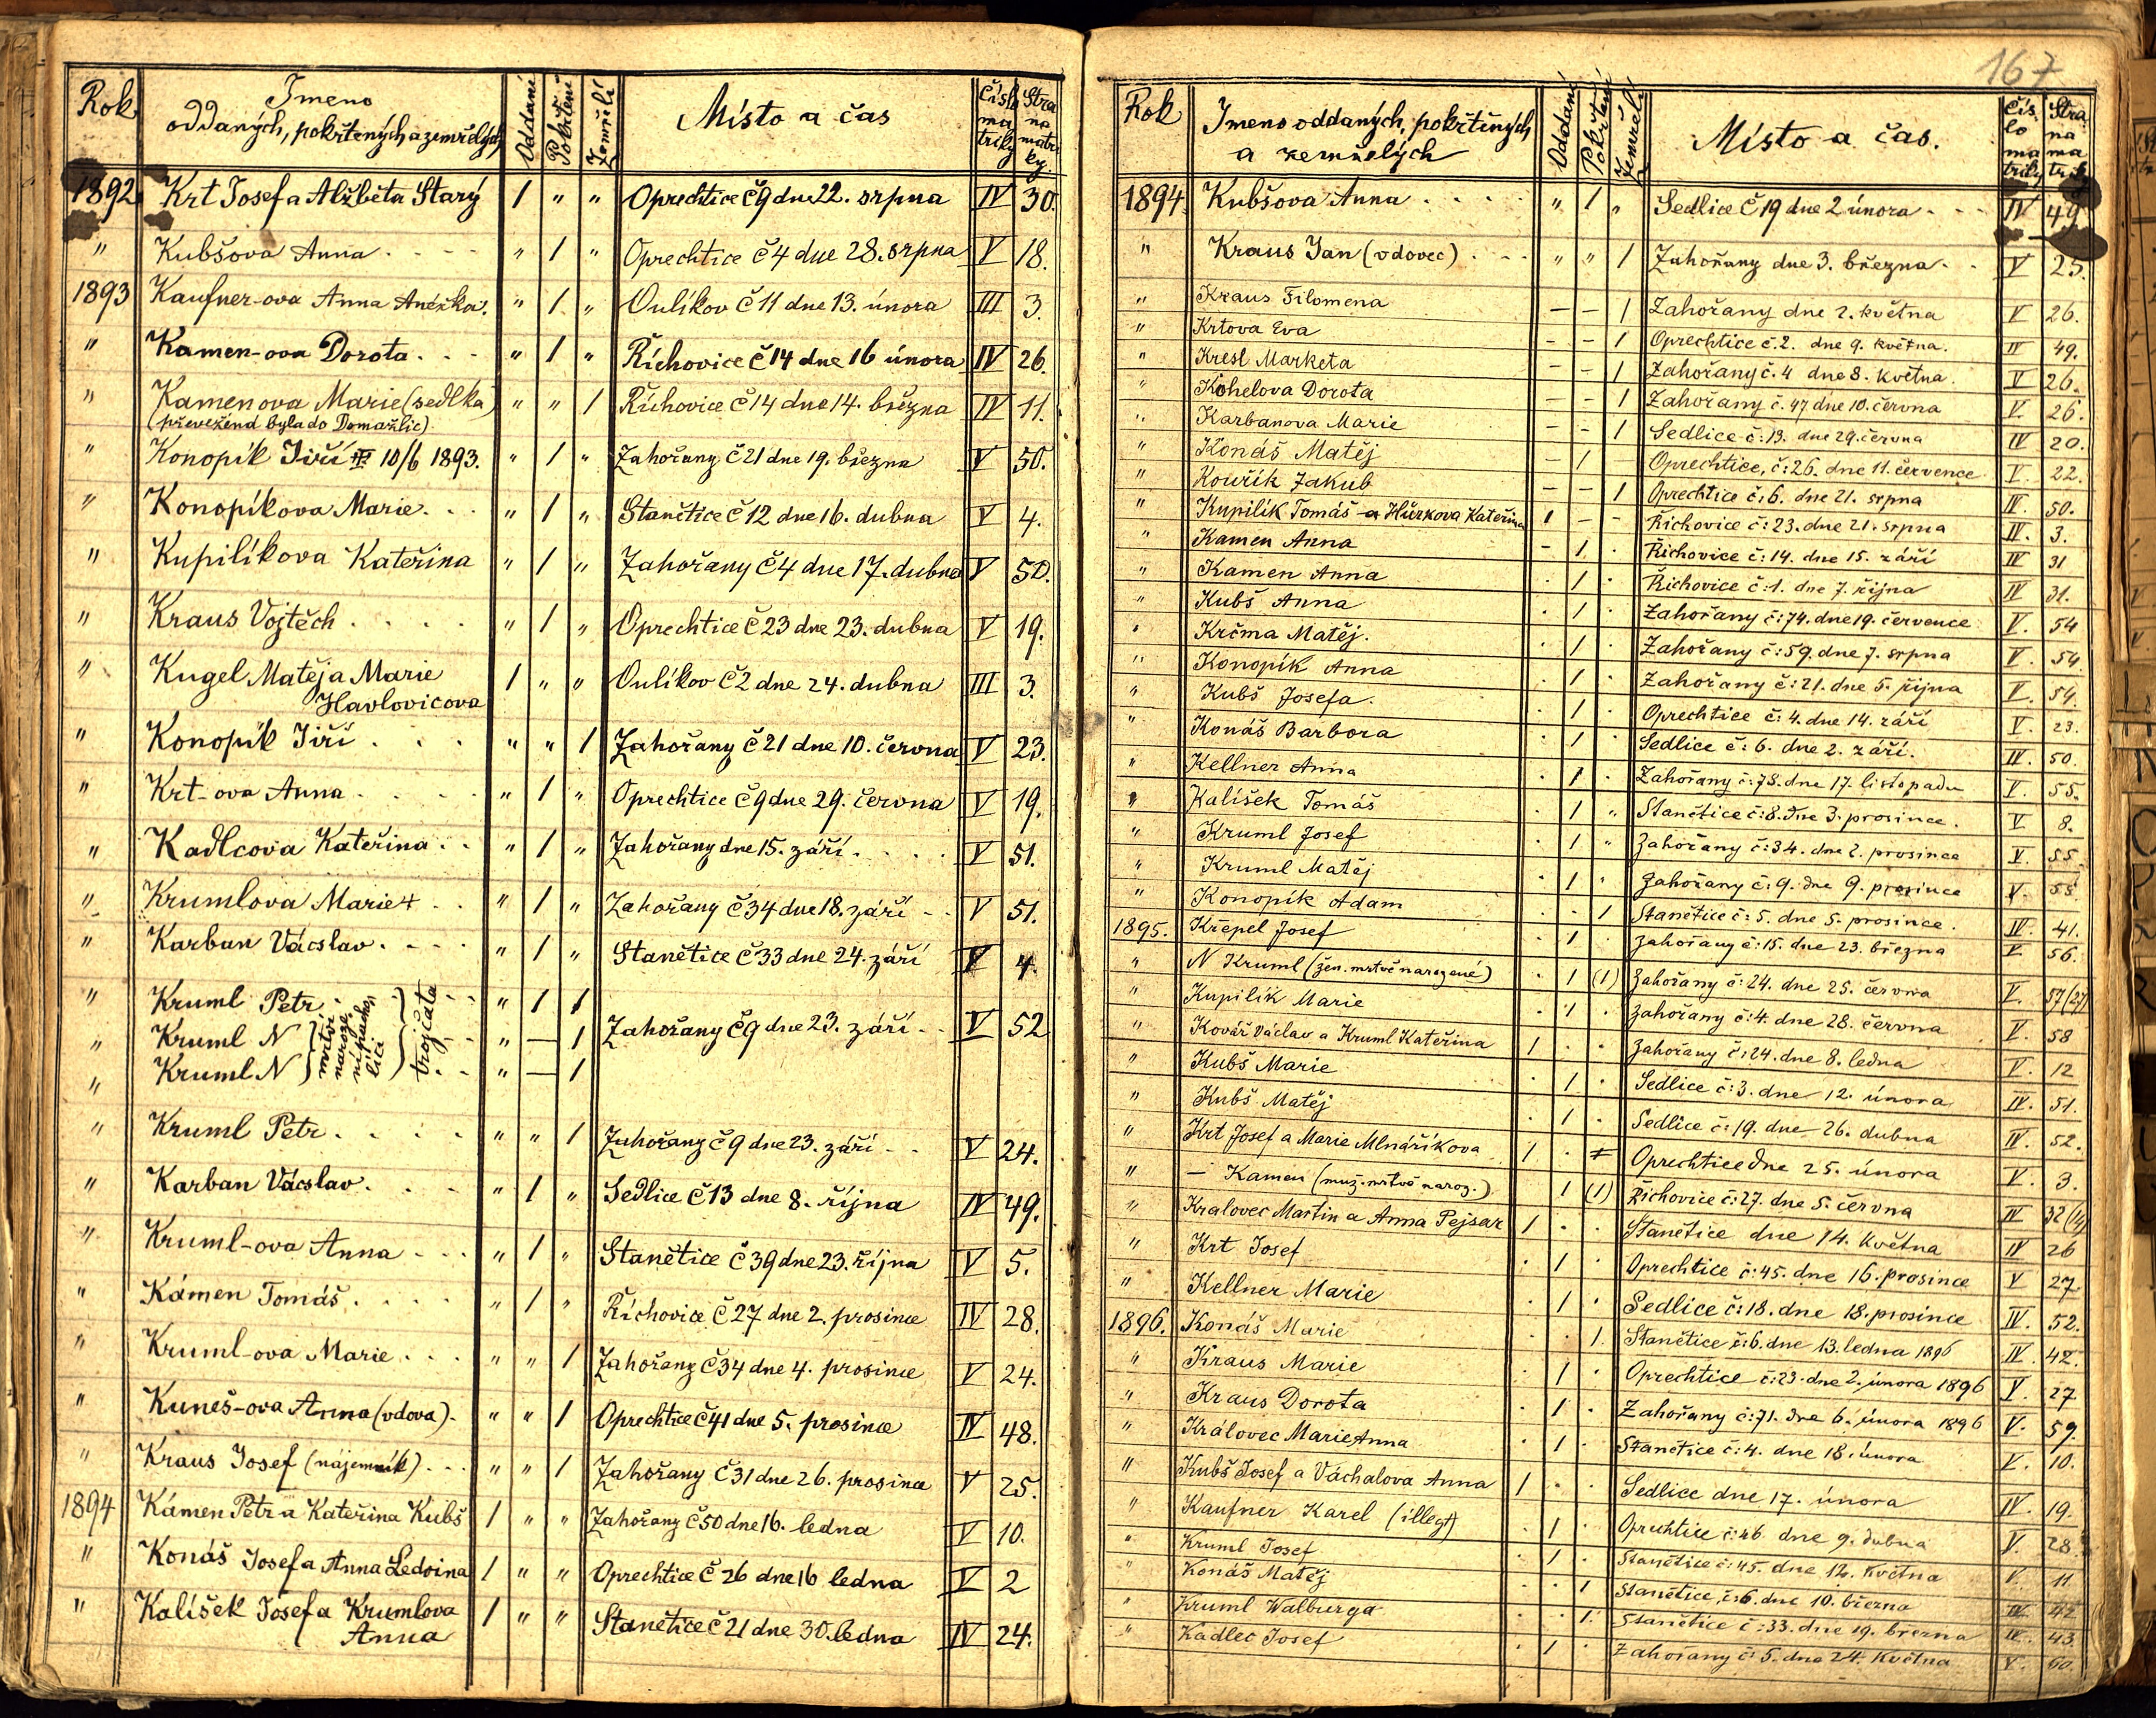 Rok Jmeno oddaných, pokřtených a zemřelých Oddaní Pokřtení Zemřelí Místo a čas Číslo matriky Strana matriky
1892 Krt Josef a Alžběta Starý 1 " " Oprechtice č 9 dne 22. srpna IV 30.
" Kubšova Anna " 1 " Oprechtice č 4 dne 28. srpna V 18.
1893 Kaufner-ova Anna Anežka. " 1 " Oulíkov č 11 dne 13. února III 3.
" Kamen-ova Dorota " 1 " Říchovice č 14 dne 16 února IV 26.
" Kamenova Marie (sedlka) " " 1 Říchovice č 14 dne 14. března IV 11.
(převežená byla do Domažlic)
" Konopík Jiří 10/6 1893. " 1 " Zahořany č 21 dne 19. března V 50.
" Konopíkova Marie " 1 " Stanětice č 12 dne 16. dubna V 4.
" Kupilíkova Kateřina " 1 " Zahořany č 4 dne 17. dubna V 50.
" Kraus Vojtěch " 1 " Oprechtice č 23 dne 23. dubna V 19.
" Kugel Matěj a Marie 1 " " Oulíkov č 2 dne 24. dubna III 3.
Havlovicova
" Konopík Jiří " " 1 Zahořany č 21 dne 10. června V 23.
" Krt-ova Anna " 1 " Oprechtice č 9 dne 29. června V 19.
" Kadlcova Kateřina " 1 " Zahořany dne 15. září V 51.
" Krumlova Marie + " 1 " Zahořany č 34 dne 18. září V 51.
" Karban Václav " 1 " Stanětice č 33 dne 24. září V 4.
" Kruml Petr " 1 1
" Kruml N mrtvě narození pacholíci trojčata " — 1 Zahořany č 9 dne 23. září V 52
" Kruml N " — 1
" Kruml Petr " " 1 Zahořany č 9 dne 23. září V 24.
" Karban Václav " 1 " Sedlice č 13 dne 8. října IV 49.
" Kruml-ova Anna " 1 " Stanětice č 39 dne 23. října V 5.
" Kámen Tomáš " 1 " Říchovice č 27 dne 2. prosince IV 28.
" Kruml-ova Marie " " 1 Zahořany č 34 dne 4. prosince V 24.
" Kuneš-ova Anna (vdova) " " 1 Oprechtice č 41 dne 5. prosince IV 48.
" Kraus Josef (nájemník) " " 1 Zahořany č 31 dne 26. prosince V 25.
1894 Kámen Petr a Kateřina Kubš 1 " " Zahořany č 50 dne 16. ledna V 10.
" Konáš Josef a Anna Ledvina 1 " " Oprechtice č 26 dne 16 ledna V 2
" Kalíšek Josef a Krumlova 1 " " Stanětice č 21 dne 30. ledna IV 24.
Anna
167
Rok Jmeno oddaných, pokřtěných a zemřelých Oddaní Pokřtení Zemřelí Místo a čas. Číslo matriky Strana matriky
1894 Kubšova Anna " 1 " Sedlice č 19 dne 2 února IV 49
" Kraus Jan (vdovec) " " 1 Zahořany dne 3. března V 25.
" Kraus Filomena — — 1 Zahořany dne 2. května V 26.
" Krtova Eva — — 1 Oprechtice č. 2. dne 9. května. IV 49.
" Kresl Marketa — — 1 Zahořany č. 4 dne 8. května. V 26.
" Kohelova Dorota — — 1 Zahořany č. 47 dne 10. června V. 26.
" Karbanova Marie — — 1 Sedlice č: 13. dne 29. června IV 20.
" Konáš Matěj — 1 — Oprechtice, č: 26. dne 11. července V. 22.
" Kouřík Jakub — — 1 Oprechtice č: 6. dne 21. srpna IV. 50.
" Kupilík Tomáš a Hürkova Kateřina 1 — — Říchovice č: 23. dne 21. srpna IV. 3.
" Kamen Anna - 1 . Říchovice č: 14. dne 15. září IV 31
" Kamen Anna . 1 . Říchovice č: 1. dne 7. října IV 31.
" Kubš Anna . 1 . Zahořany č: 74. dne 19. července V. 54
" Krčma Matěj. . 1 . Zahořany č: 59. dne 7. srpna V. 54
" Konopík Anna . 1 . Zahořany č: 21. dne 5. října V. 54.
" Kubš Josefa. . 1 . Oprechtice č: 4. dne 14. září V. 23.
" Konáš Barbora . 1 . Sedlice č: 6. dne 2. září. IV. 50.
" Kellner Anna . 1 . Zahořany č: 78. dne 17. listopadu V. 55.
" Kalíšek Tomáš . 1 " Stanětice č: 8. dne 3. prosince. V 8.
" Kruml Josef . 1 " Zahořany č: 34. dne 2. prosince V. 55
" Kruml Matěj . 1 . Zahořany č: 9. dne 9. prosince V. 55
" Konopík Adam . . 1 Stanětice č: 5. dne 5. prosince. IV. 41.
1895. Křepel Josef . 1 . Zahořany č: 15. dne 23. března V 56.
" N Kruml (žen. mrtvě narozené) . 1 (1) Zahořany č: 24. dne 25. června V. 57 (27)
" Kupilík Marie . 1 . Zahořany č: 4. dne 28. června V. 58
" Kovář Václav a Kruml Kateřina 1 . . Zahořany č: 24. dne 8. ledna V. 12
" Kubš Marie . 1 . Sedlice č: 3. dne 12. února IV. 51.
" Kubš Matěj . 1 . Sedlice č: 19. dne 26. dubna IV. 52.
" Krt Josef a Marie Mlnáříkova 1 . . Oprechtice dne 25. února V. 3.
" — Kamen (muž. mrtvě naroz.) 1 (1) Říchovice č: 27. dne 5. června IV 32 (14)
" Kralovec Martin a Anna Pejsar 1 . . Stanětice dne 14. května IV 26
" Krt Josef . 1 . Oprechtice č: 45. dne 16. prosince V 27
" Kellner Marie . 1 . Sedlice č: 18. dne 18. prosince IV. 52.
1896. Konáš Marie . . 1. Stanětice č: 6. dne 13. ledna 1896 IV. 42.
" Kraus Marie . 1 . Oprechtice č: 23. dne 2. února 1896 V. 27
" Kraus Dorota . 1 . Zahořany č: 71. dne 6. února 1896 V. 59.
" Královec Marie Anna . 1 . Stanětice č: 4. dne 18. února V. 10.
" Kubš Josef a Váchalova Anna 1 . . Sedlice dne 17. února IV. 19.
" Kaufner Karel (illegt) . 1 . Oprechtice č: 46 dne 9. dubna V. 28
" Kruml Josef . 1 . Stanětice č: 45. dne 12. května V. 11
" Konáš Matěj . . 1 Stanětice, č: 6. dne 10. března IV 42
" Kruml Walburga . . 1. Stanětice č: 33. dne 19. března IV. 43
" Kadlec Josef . 1 . Zahořany č: 5. dne 24. května V. 60.